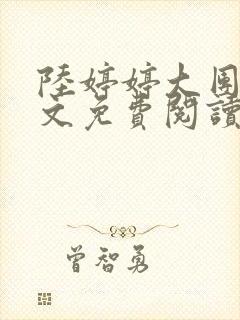 陸婷婷大團
文免費閱讀
曾智勇